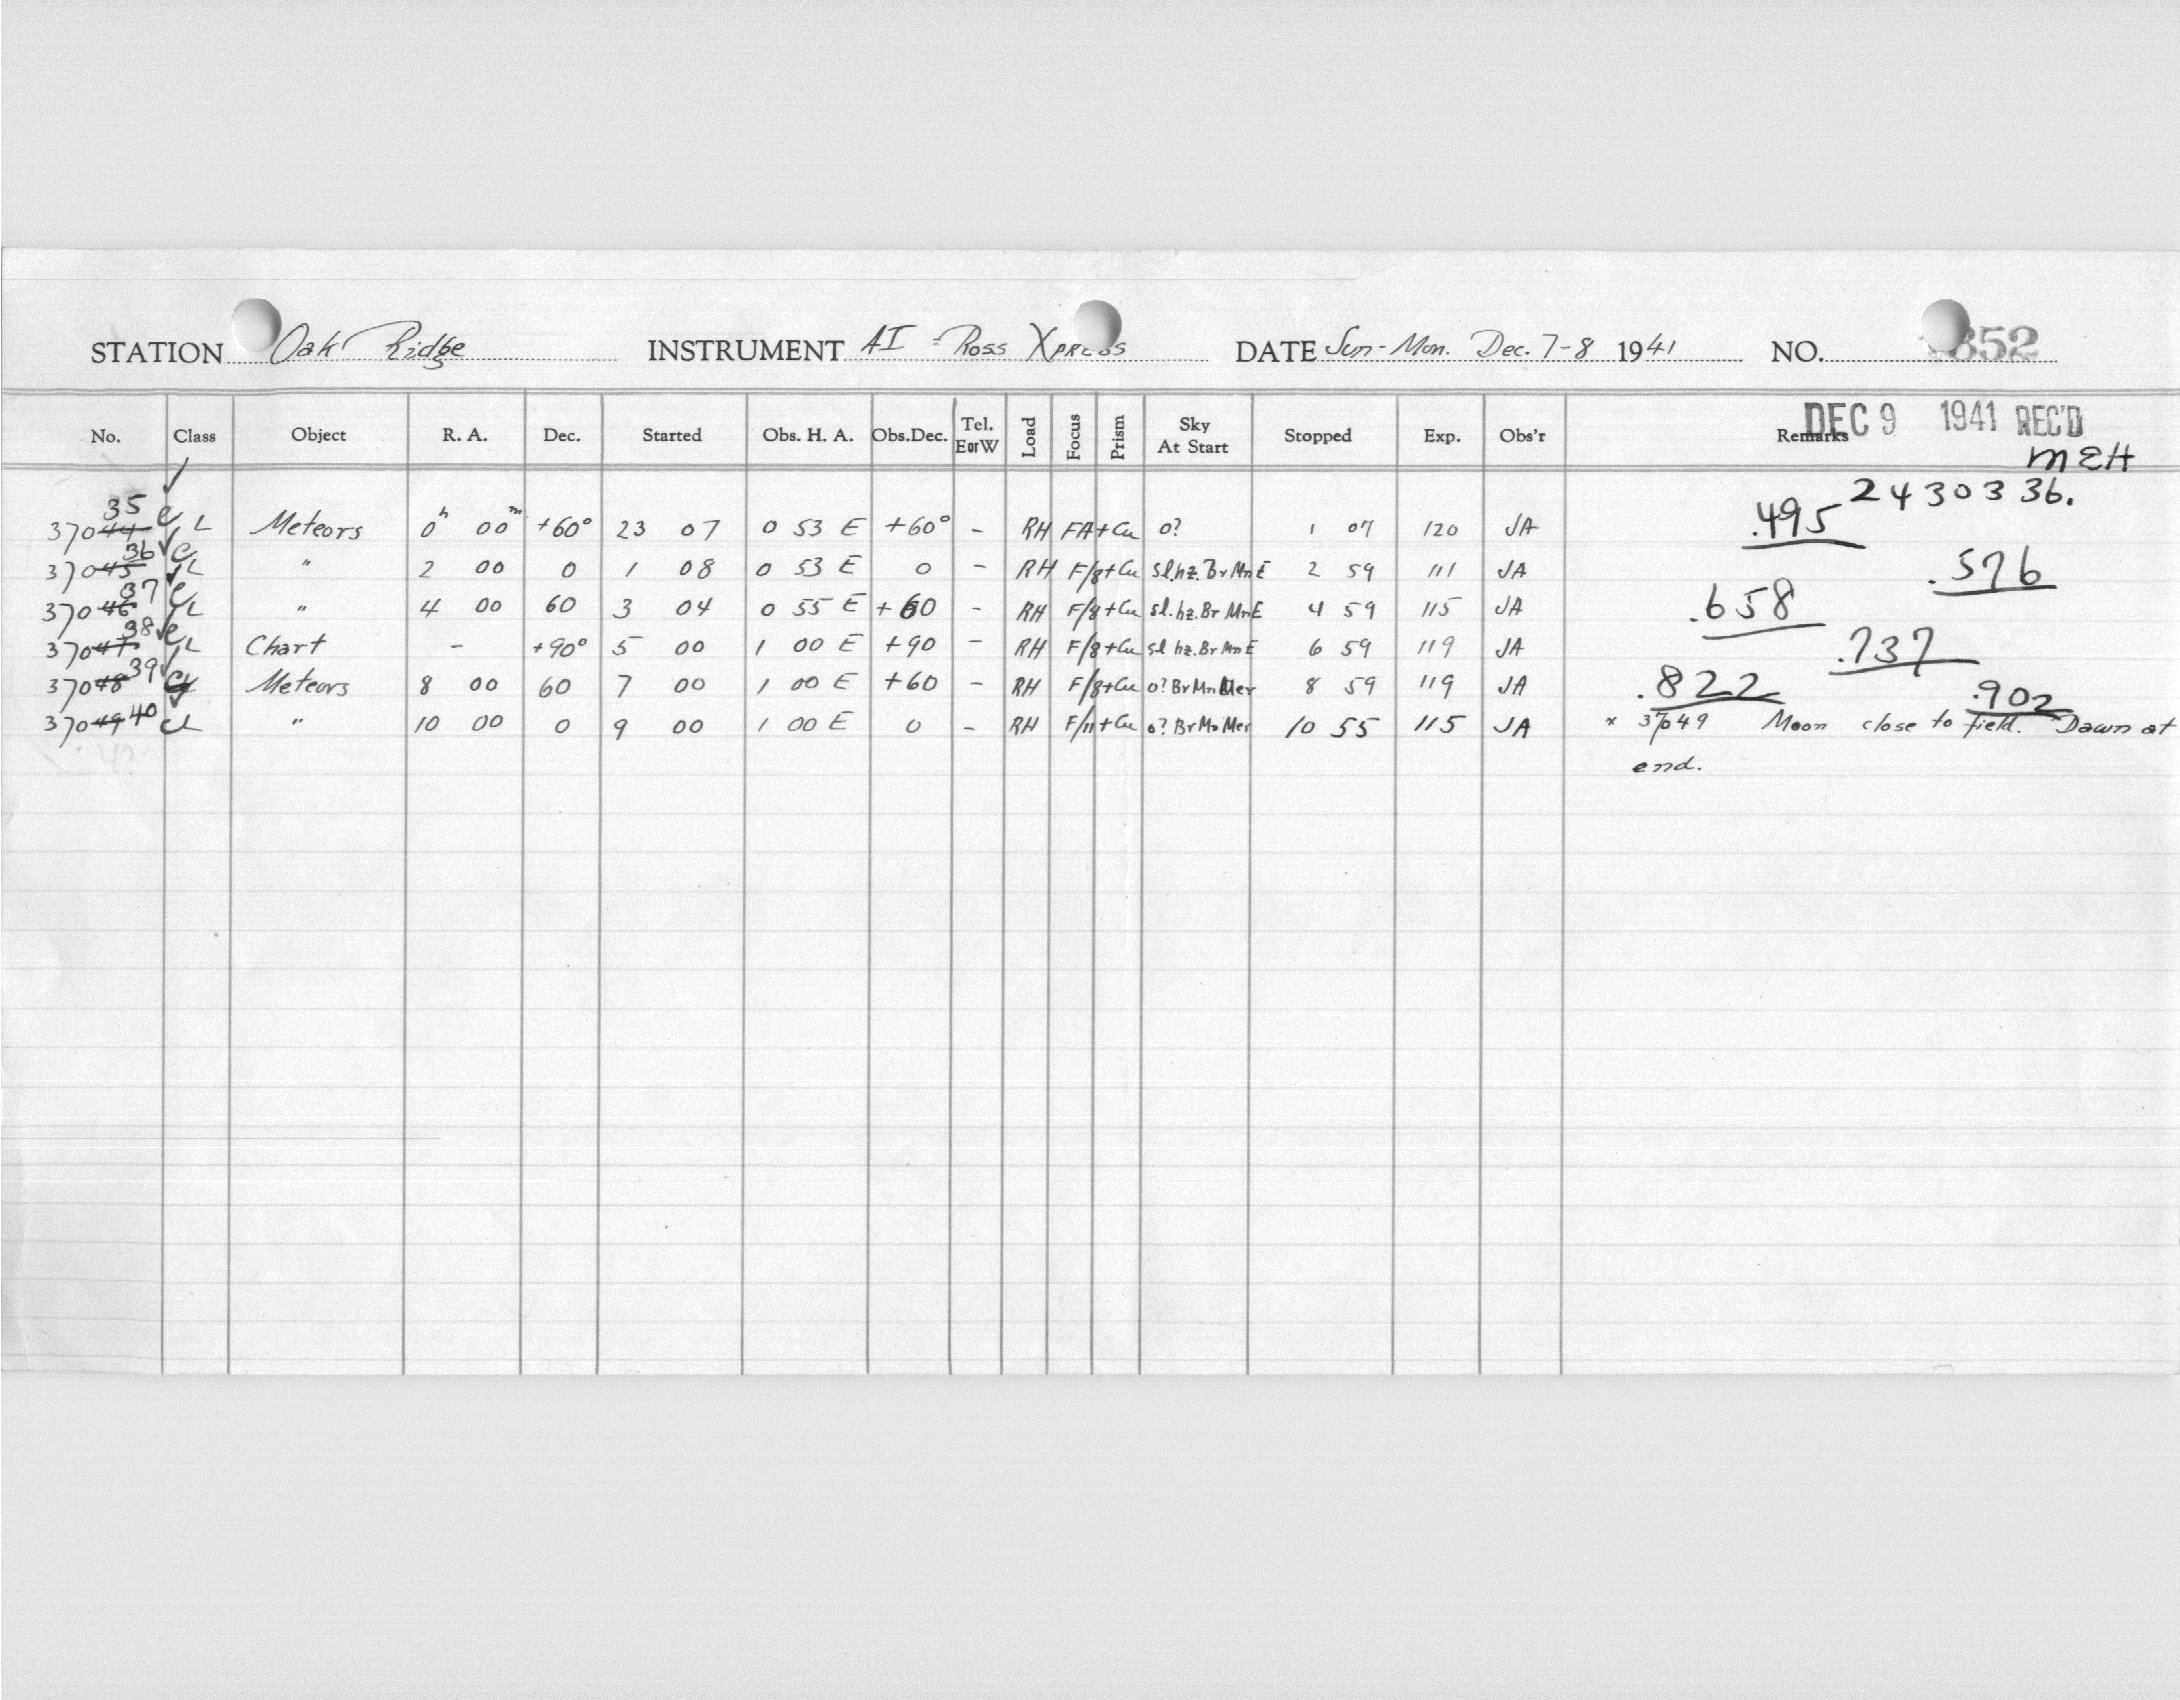 STATION Oak Ridge INSTRUMENT AI - Ross Xpress DATE Sun-Mon. Dec. 7-8 1941 NO. 852
No. Class Object R. A. Dec. Started Obs. H. A. Obs.Dec. Tel. E or W Load Focus Prism Sky At Start Stopped Exp. Obs'r Remarks DEC 9 1941 REC'D
MEH
2430336.
35
37044 C L Meteors 0h 00m +60° 23 07 0 53 E +60° - RH FA+Cu o? 1 07 120 JA .495
36
37045 C L " 2 00 0 1 08 0 53 E 0 - RH F/8+Cu sl.hz.BrMnE 2 59 111 JA .576
37
37046 C L " 4 00 60 3 04 0 55 E +60 - RH F/8+Cu sl.hz.BrMnE 4 59 115 JA .658
38
37047 C L Chart - +90° 5 00 1 00 E +90 - RH F/8+Cu sl hz.BrMnE 6 59 119 JA .737
39
37048 CL Meteors 8 00 60 7 00 1 00 E +60 - RH F/8+Cu o? BrMnMer 8 59 119 JA .822 .902
37049 40 CL " 10 00 0 9 00 1 00 E 0 - RH F/11+Cu o? BrMnMer 10 55 115 JA × 37049 Moon close to field. Dawn at
end.